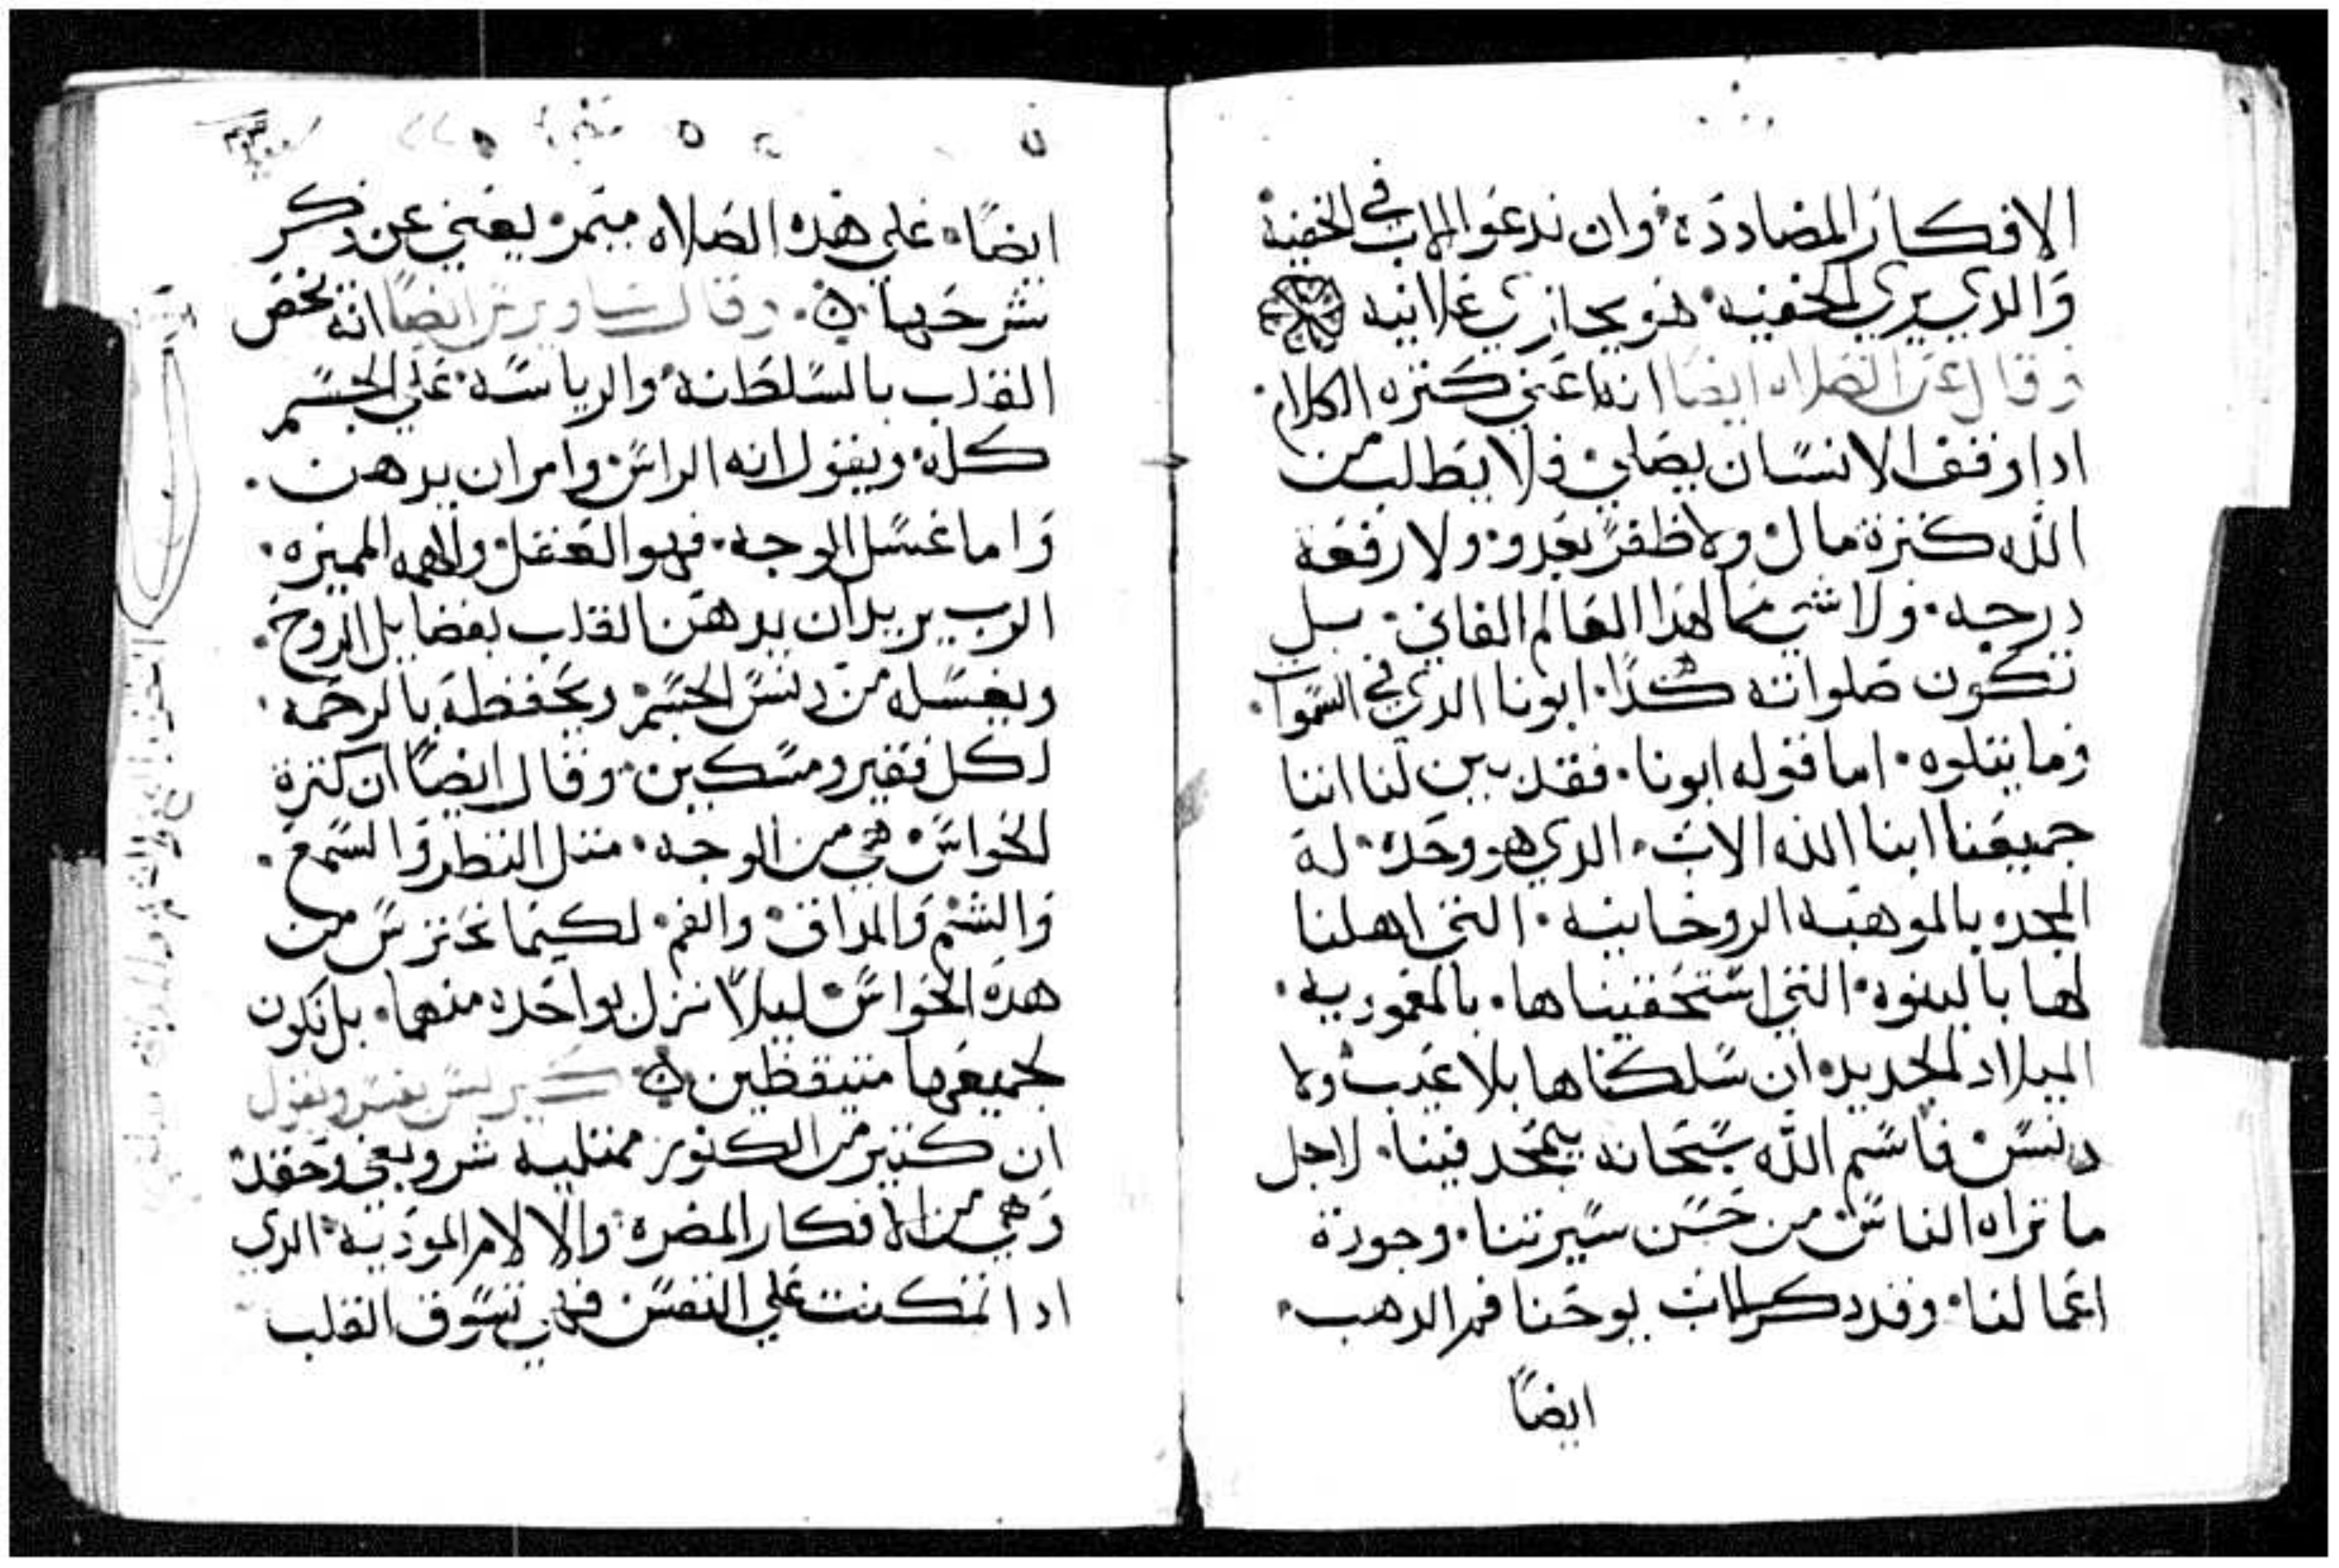 الافكار المضاددة وان ندعوا الاب في الخفية
والدي يري الخفيه هو يجازي علانيه
وقال عن الصلاه ايضا انها عني كتره الكلام
ادا وقف الانسان يصلي فلا يطلب من
الله كترة مال ولا ظفر بعدو ولا رفعة
درجه ولا شي مما لهدا العالم الفاني بل
تكون صلواته هكذا ابونا الدي في السموات
وما يتلوه اما قوله ابونا فقد بين لنا اننا
جميعنا ابنا الله الاب الدي هو وحده له
المجد بالموهبه الروحانيه التي اهلنا
لها بالبنوه التي استحقيناها بالمعموديه
الميلاد الجديد ان سلكناها بلا عيب ولا
دنس فاسم الله سبحانه يتمجد فينا لاجل
ما تراه الناس من حسن سيرتنا وجودة
اعمالنا وقد دكر الاب يوحنا فم الدهب
ايضًا
ايضًا علي هذه الصلاه يعني عن ذكر
شرحها وقال ساويرس ايضًا انه يخص
القلب بالسلطانه والرياسه علي الجسم
كله ويقول انه الراس وامر ان يدهن
واما غسل الوجه فهو العقل المميزه
الرب يريد ان يدهن القلب بفضايل الروح
ويغسله من دنس الجسم ويحفظه بالرحمه
لكل فقير ومسكين وقال ايضًا ان كترة
الحواس هي من الوجه متل النظر والسمع
والشم والمداق والفم لكيما نحترس من
هده الحواس ليلا نزل بواحده منهما بل نكون
بجميعها متيقظين كيرلس يفسر ويقول
ان كتير من الكنوز ممتليه شر وبغي وحقد
وهي من الافكار المضره والالام الموذيه الدي
ادا تمكنت علي النفس فهي تسوق القلب